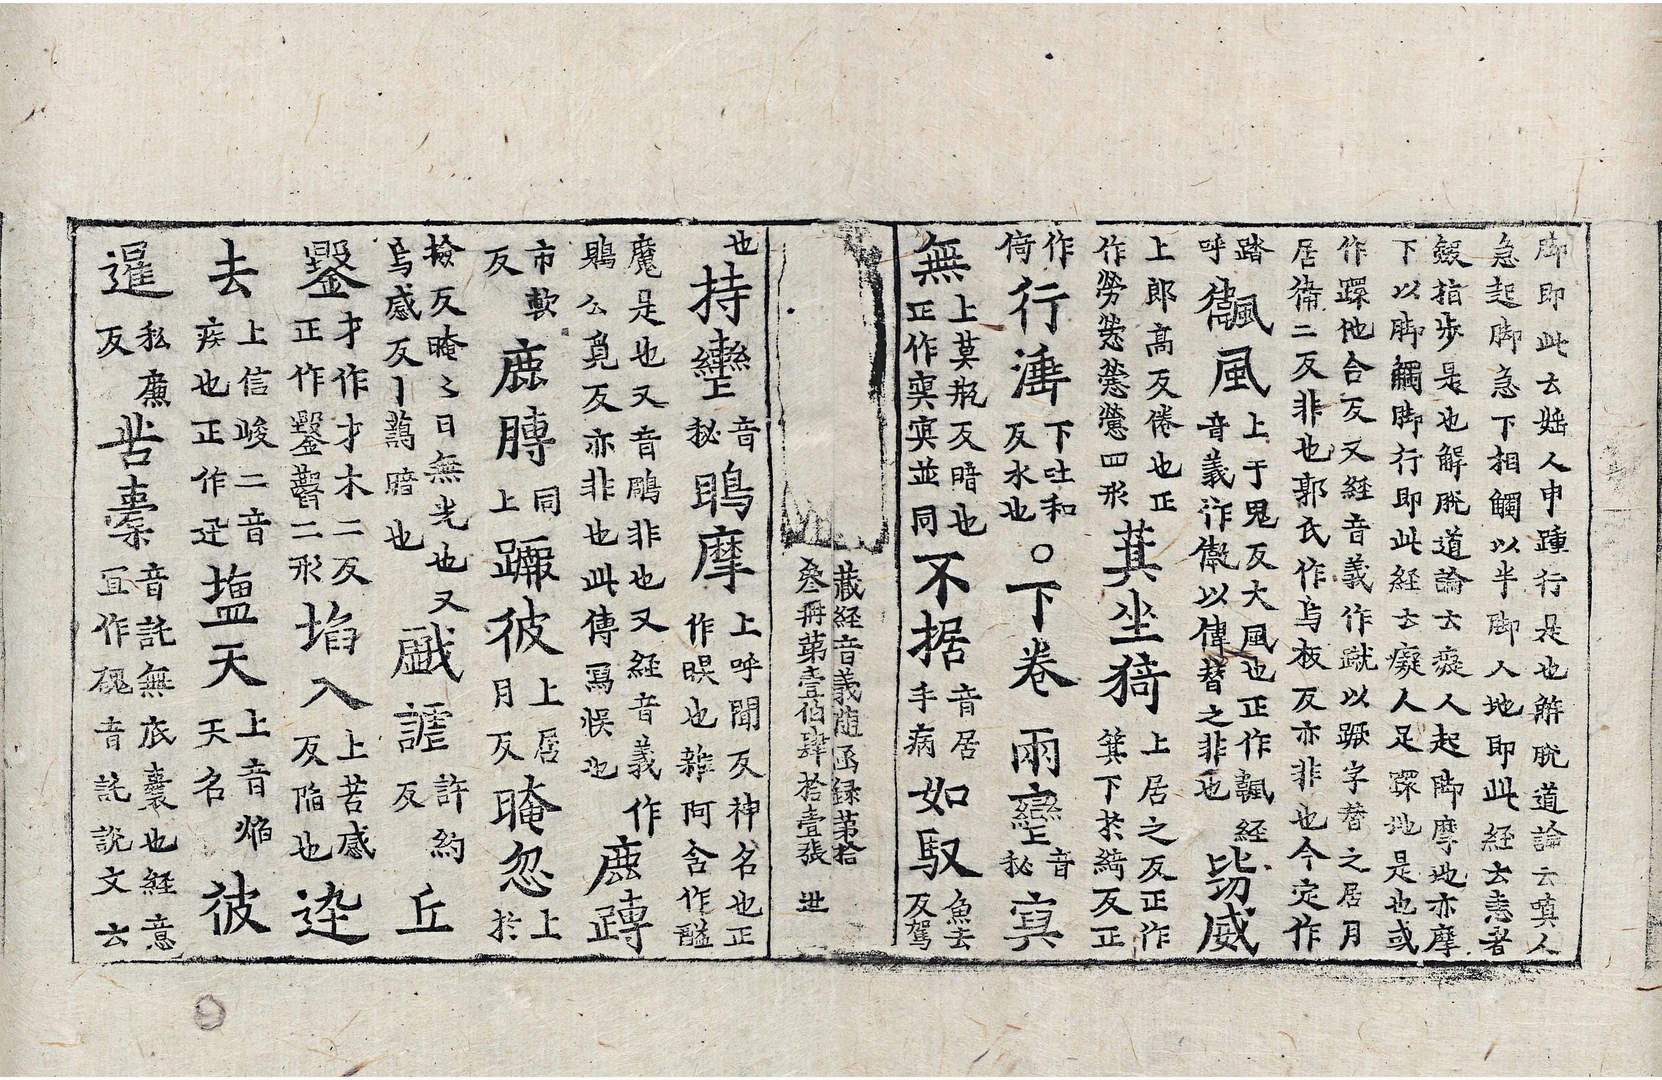 脚即此云㛼人申踵行是也解脫道論云嗔人
急起脚急下相觸以半脚人地即此經云恚者
㲉指步是也解脫道論云癡人起脚摩地亦摩
下以脚觸脚行即此經云癡人足躁地是也或
作躁他合反又經音義作蹴以蹶字替之居月
居衞二反非也郭氏作烏板反亦非也今定作
踏
呼
風上于鬼反大風也正作颽經
音義作㒞以偉替之非也
威
上郎高反倦也正
作勞
四形
萁坐猗上居之反正作
箕下於綺反正
作
倚
行㴜下吐和
反水也
○下卷
兩𡓩音
秘
寞
無上莫瓶反暗也
正作冥㝠並同
不据音居
手病
如馭魚去
反駕
藏經音義隨函録第拾
叄冊第壹伯肆拾壹張
㳬
也
持𡓩音
秘
鴖摩上呼聞反神名也正
作䁈也雜阿含作醯
魔是也又音鵰非也又經音義作
鵙公覓反亦非也此傳寫悞也
鹿
市軟
反
鹿膞同
上
蹍彼上居
月反
晻忽上
於
檢反晻〻日無光也又
烏感反
暗也
戲謔許約
反
丘
鑿才作才木二反
正作鑿
二形
埳入上苦感
反陷也
迯
去上信峻二音
疾也正作迅
塭天上音焰
天名
彼
暹私廉
反
苦橐音託無底囊也經意
冝作
音託説文云